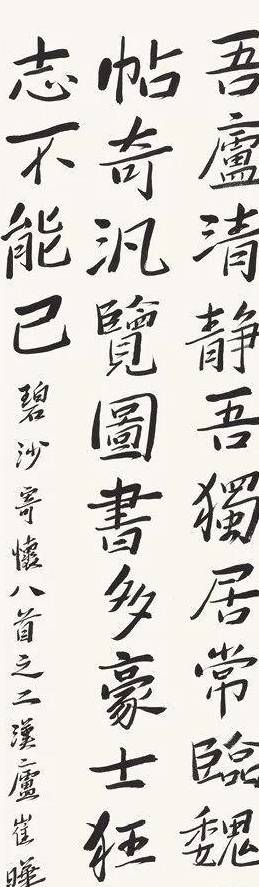 吾廬清静吾獨居常臨魏
帖奇汎覽圖書多豪士狂
志不能已
碧沙寄懷八首之二漢廬崔曄